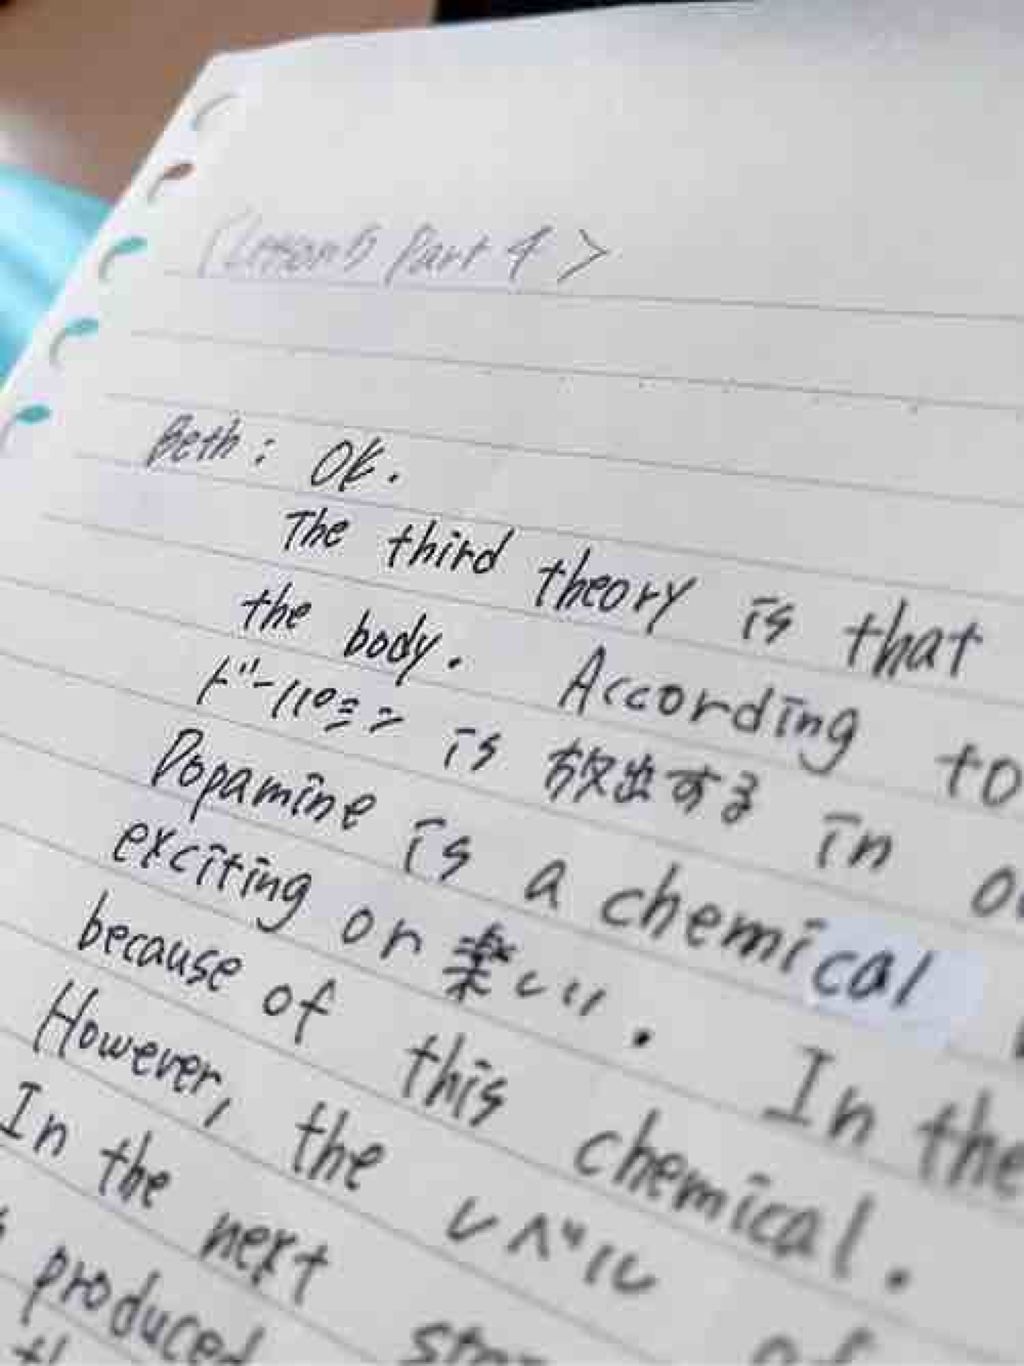 <Lesson5 Part 4>
Beth: OK.
The third theory is that
the body. According to
ドーパミン is 放出する in
Dopamine is a chemical
exciting or 楽しい. In the
because of this chemical.
However, the レベル of
In the next
produced